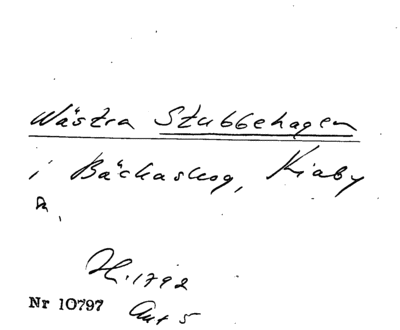 Wästra Stubbehagen
i Bäckaskog, Kiaby
sn,
H. 1792
Nr 10797 Akt 5